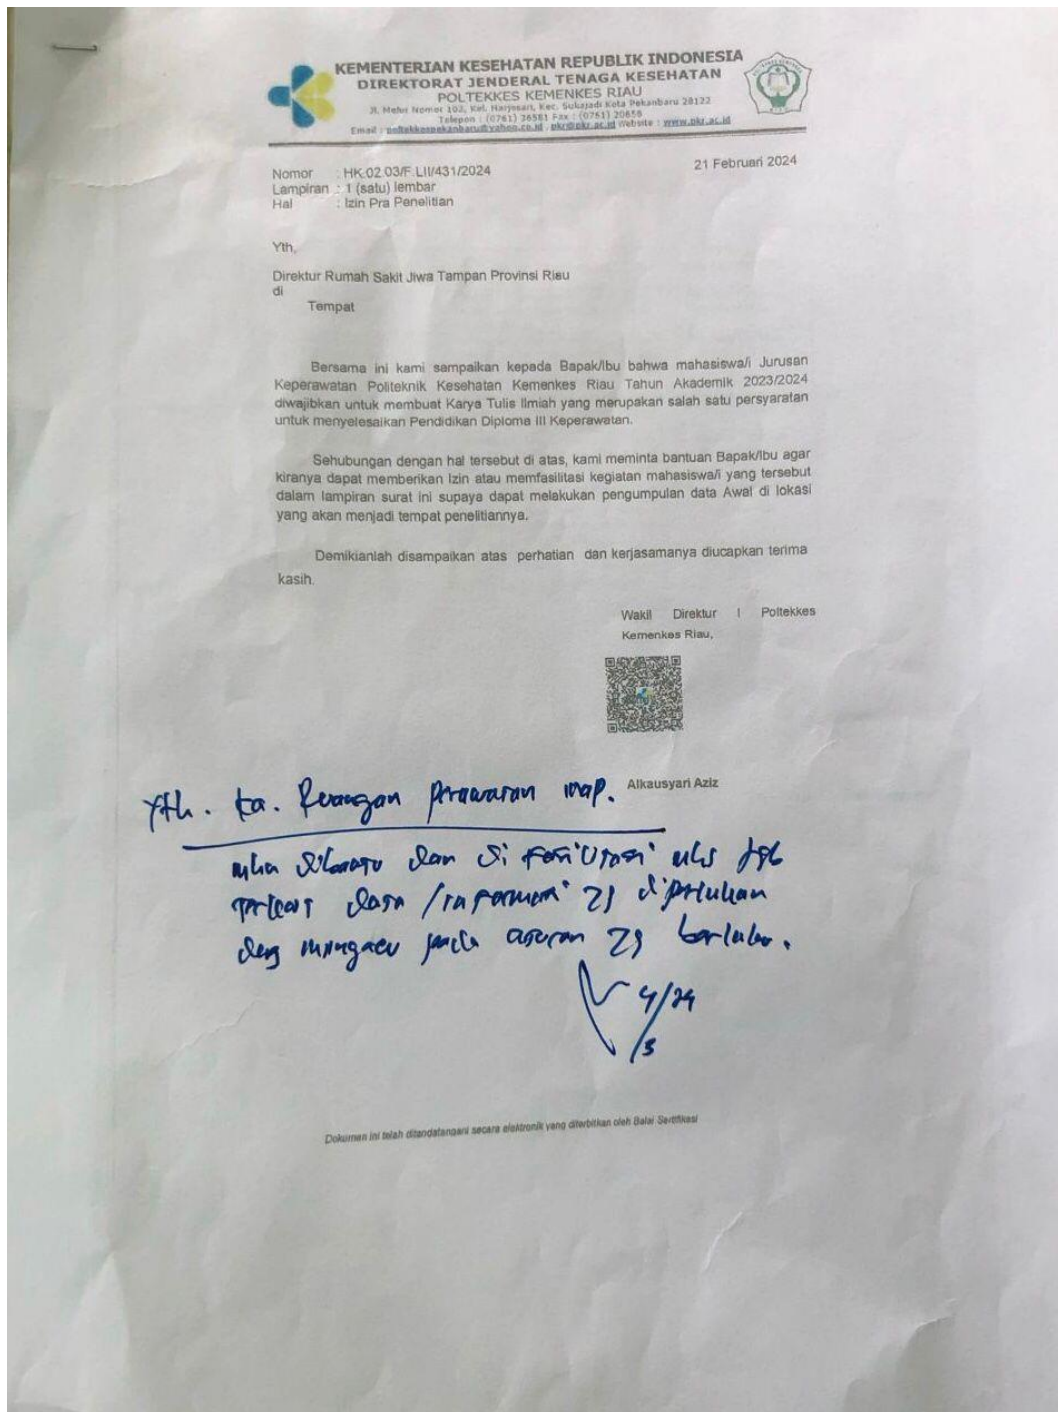 KEMENTERIAN KESEHATAN REPUBLIK INDONESIA
DIREKTORAT JENDERAL TENAGA KESEHATAN
POLTEKKES KEMENKES RIAU
Jl. Melur Nomor 103, Kel. Harjosari, Kec. Sukajadi Kota Pekanbaru 28122
Telepon : (0761) 36581 Fax : (0761) 20656
Email : poltekkespekanbaru@yahoo.co.id , pkr@pkr.ac.id Website : www.pkr.ac.id
21 Februari 2024
Nomor : HK.02.03/F.LII/431/2024
Lampiran : 1 (satu) lembar
Hal : Izin Pra Penelitian
Yth,
Direktur Rumah Sakit Jiwa Tampan Provinsi Riau
di
Tempat
Bersama ini kami sampaikan kepada Bapak/Ibu bahwa mahasiswa/i Jurusan
Keperawatan Politeknik Kesehatan Kemenkes Riau Tahun Akademik 2023/2024
diwajibkan untuk membuat Karya Tulis Ilmiah yang merupakan salah satu persyaratan
untuk menyelesaikan Pendidikan Diploma III Keperawatan.
Sehubungan dengan hal tersebut di atas, kami meminta bantuan Bapak/Ibu agar
kiranya dapat memberikan Izin atau memfasilitasi kegiatan mahasiswa/i yang tersebut
dalam lampiran surat ini supaya dapat melakukan pengumpulan data Awal di lokasi
yang akan menjadi tempat penelitiannya.
Demikianlah disampaikan atas perhatian dan kerjasamanya diucapkan terima
kasih.
Wakil Direktur I Poltekkes
Kemenkes Riau,
Alkausyari Aziz
Yth. Ka. Ruangan perawatan inap.
dibantu dan di fasilitasi mhs tsb
terkait data / informasi yg diperlukan
deng mengacu pada aturan yg berlaku.
4/24
/3
Dokumen ini telah ditandatangani secara elektronik yang diterbitkan oleh Balai Sertifikasi